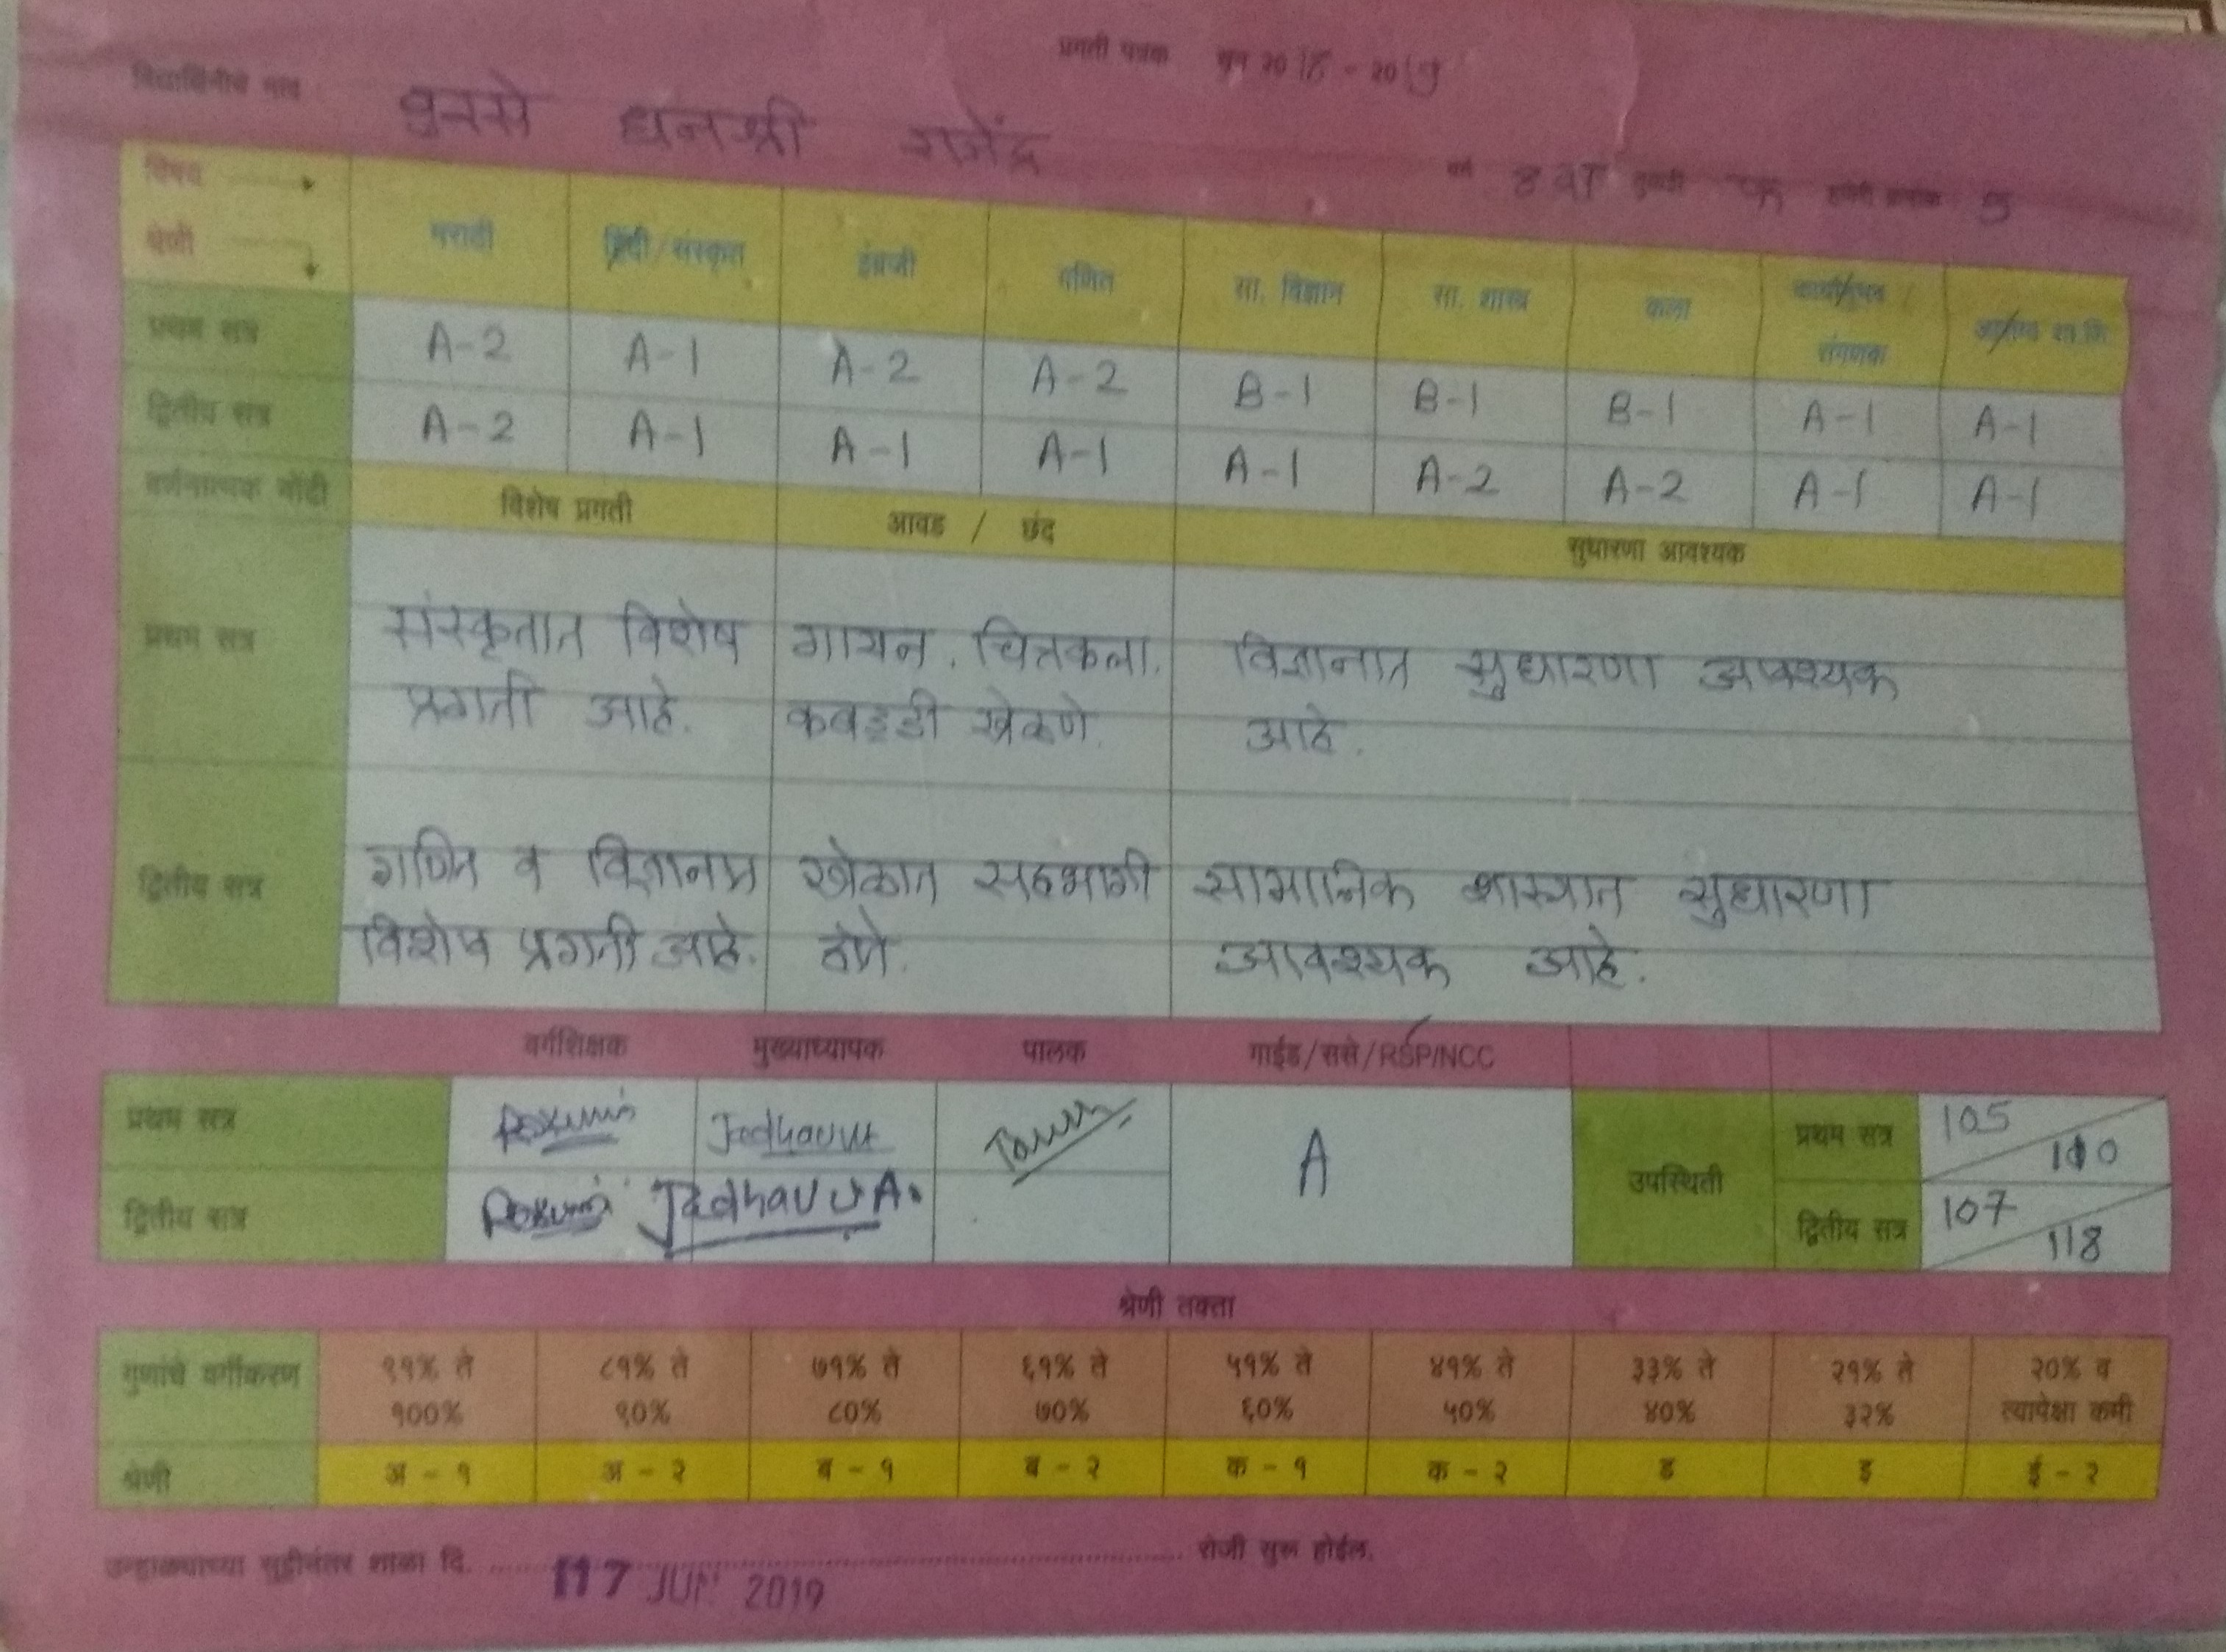 प्रगती पत्रक जून २० 18 - २० 19
विद्यार्थिनीचे नाव धनश्री राजेंद्र
8 वी तुकडी फ हजेरी क्रमांक 5
विषय मराठी हिंदी / संस्कृत इंग्रजी गणित सा. विज्ञान सा. शास्त्र कला कार्यानुभव / संगणक आरोग्य शा.शि
श्रेणी
प्रथम सत्र A-2 A-1 A-2 A-2 B-1 B-1 B-1 A-1 A-1
द्वितीय सत्र A-2 A-1 A-1 A-1 A-1 A-2 A-2 A-1 A-1
वर्णनात्मक नोंदी विशेष प्रगती आवड / छंद सुधारणा आवश्यक
प्रथम सत्र संस्कृतात विशेष गायन, चित्रकला, विज्ञानात सुधारणा आवश्यक
प्रगती आहे. कबड्डी खेळणे. आहे.
द्वितीय सत्र गणित व विज्ञानात खेळात सहभागी सामाजिक शास्त्रात सुधारणा
विशेष प्रगती आहे. होणे. आवश्यक आहे.
वर्गशिक्षक मुख्याध्यापक पालक गाईड/ससे/RSP/NCC
प्रथम सत्र A उपस्थिती प्रथम सत्र 105 / 110
द्वितीय सत्र द्वितीय सत्र 107 / 118
श्रेणी तक्ता
गुणांचे वर्गीकरण ९१% ते ८१% ते ७१% ते ६१% ते ५१% ते ४१% ते ३३% ते २१% ते २०% व
१००% ९०% ८०% ७०% ६०% ५०% ४०% ३२% त्यापेक्षा कमी
श्रेणी अ - १ अ - २ ब - १ ब - २ क - १ क - २ ड इ ई - २
उन्हाळ्याच्या सुट्टीनंतर शाळा दि. 17 JUN 2019 रोजी सुरू होईल.